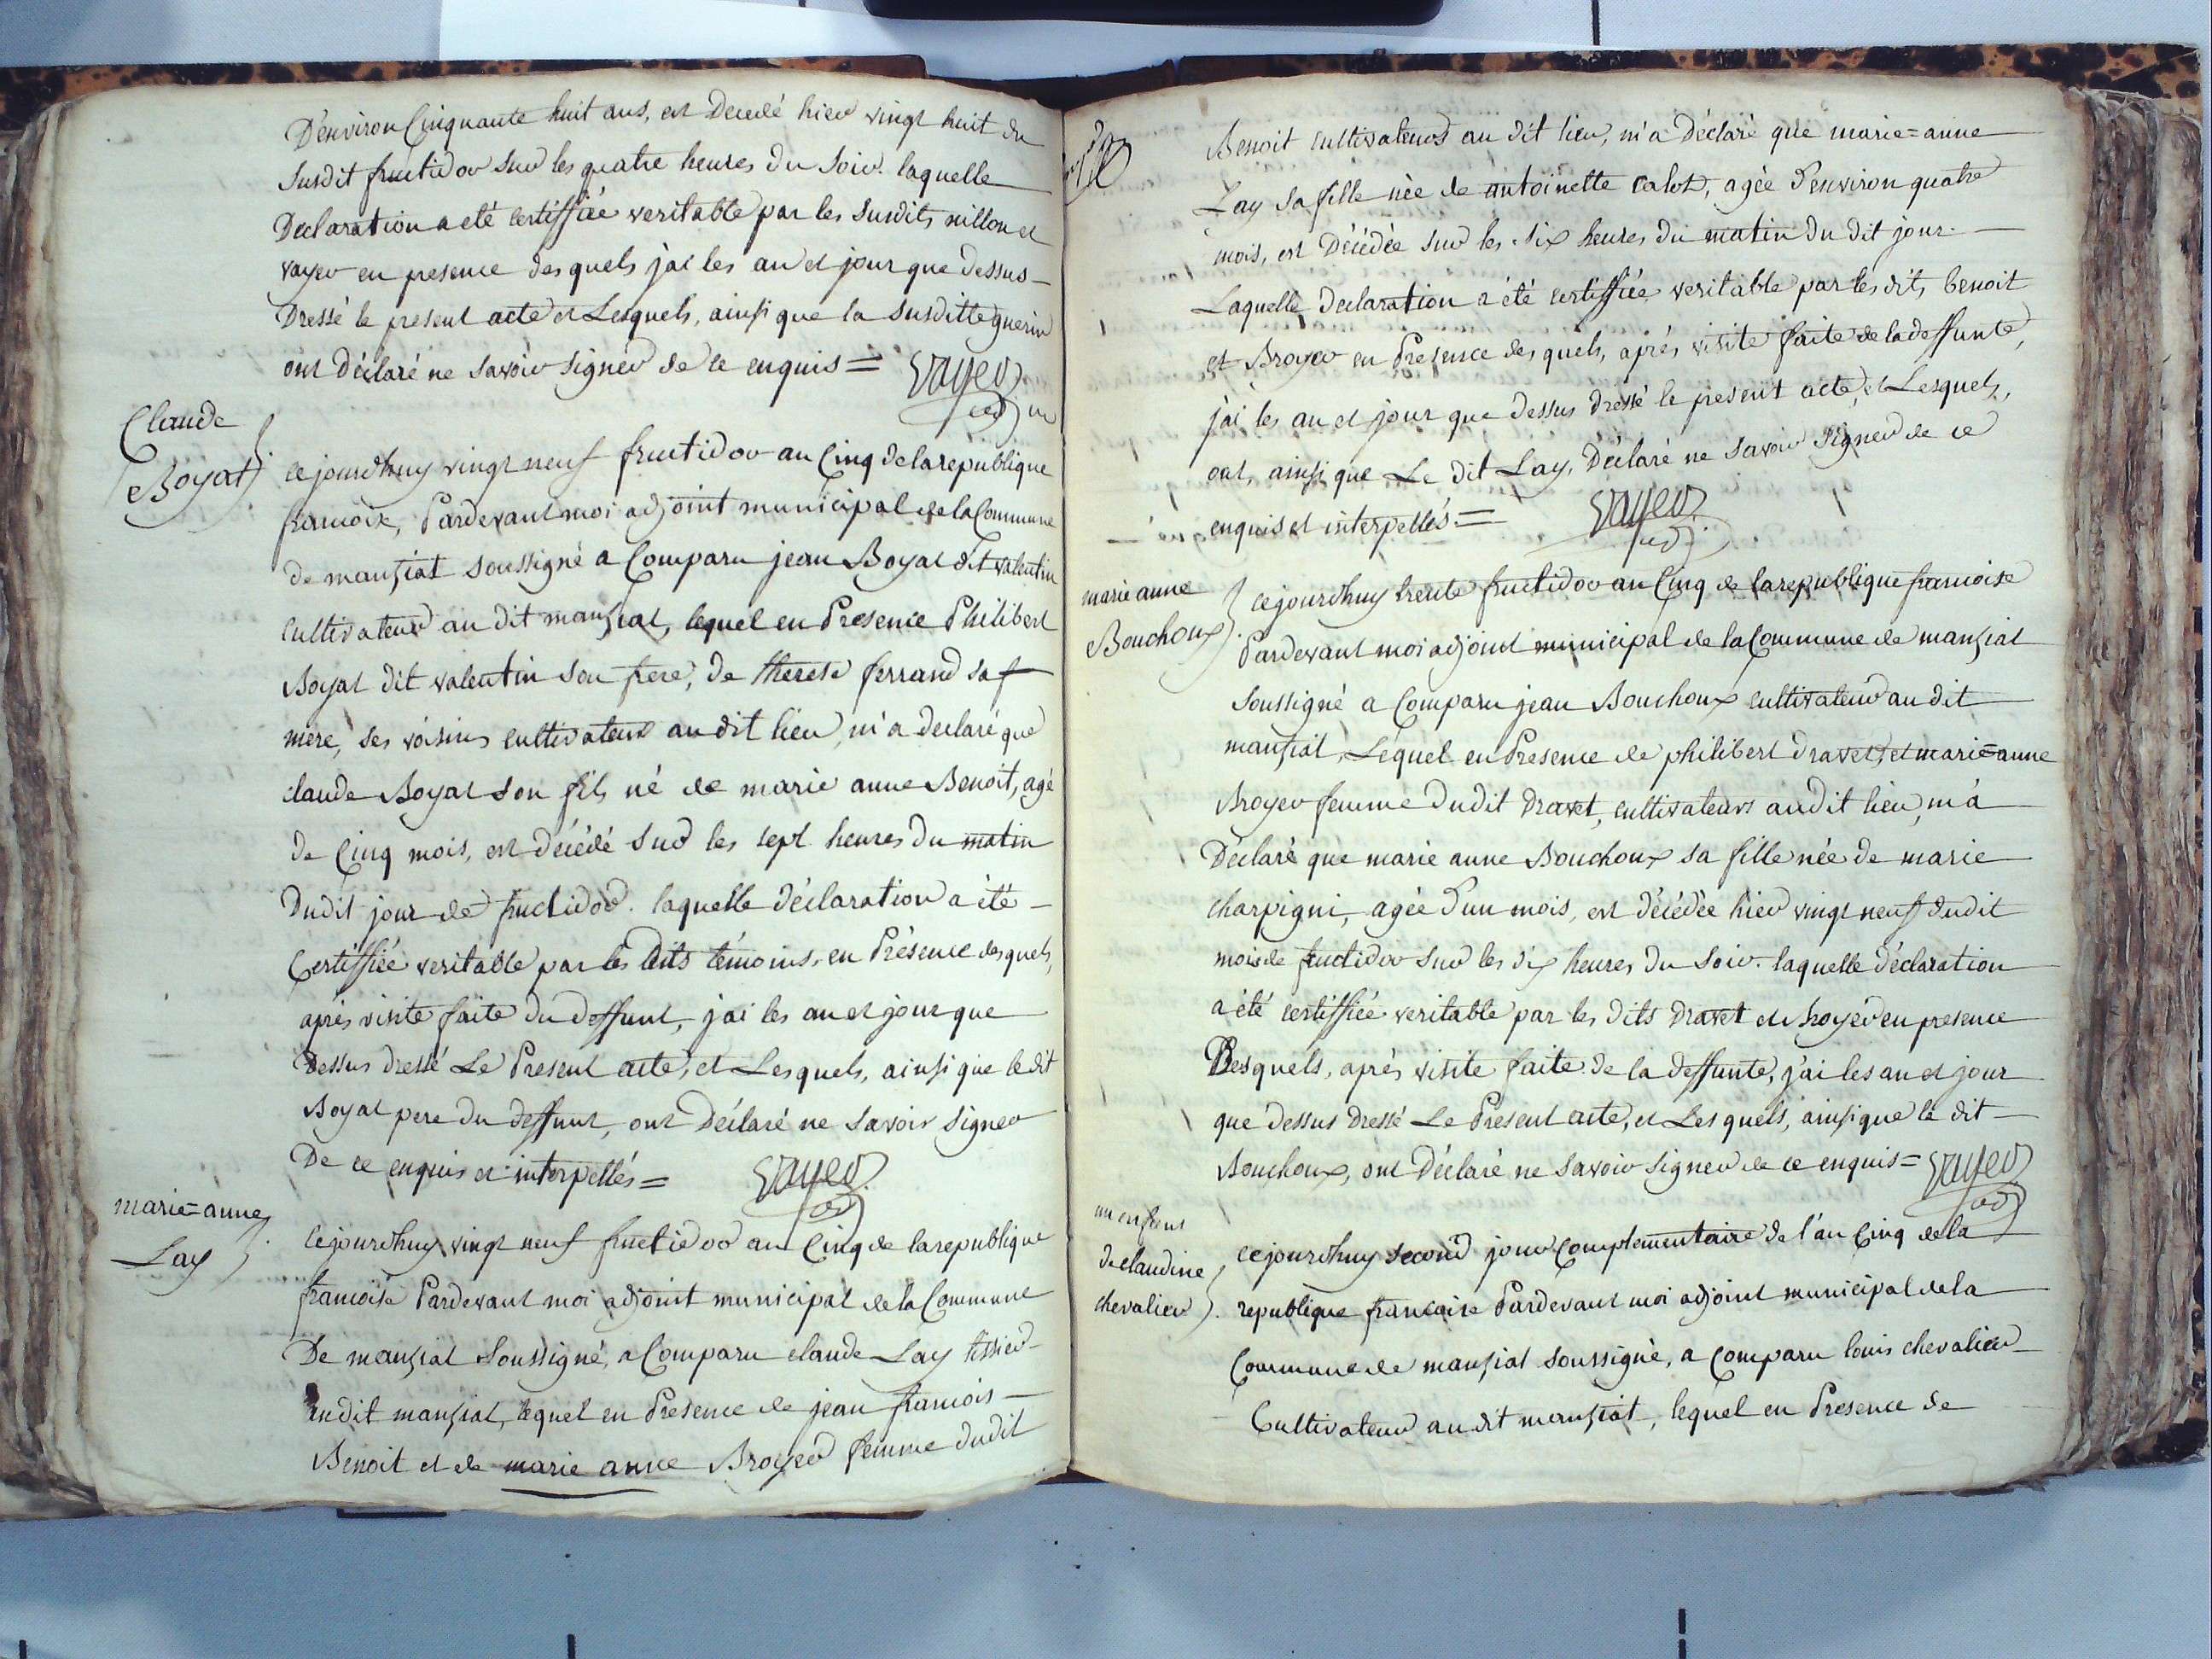 D'environ Cinquante huit ans, est Decedé hier vingt huit du
susdit fructidor sur les quatre heures du Soir. laquelle
Declaration a eté certiffiée veritable par les susdits millon et
vayer en presence des quels j'ai les an et jour que dessus
Dressé le present acte et Lesquels, ainsi que la susditte guerin
ont Déclaré ne savoir signer de ce enquis =
vayer
adj
Claude
Boyat
cejourdhuy vingt neuf fructidor an Cinq de la republique
francoise, Pardevant moi adjoint municipal de la Commune
de manziat soussigné a Comparu jean Boyat dit valentin
cultivateur au dit manziat, lequel en Presence Philibert
Boyat dit valentin son frere, de therese ferrand sa
mere, ses voisins cultivateurs au dit lieu, m'a declaré que
claude Boyat son fils né de marie anne Benoit, agé
de Cinq mois, est décédé sur les sept heures du matin
Dudit jour de fructidor. laquelle déclaration a été
Certiffiée veritable par les dits témoins, en Présence desquels,
aprés visite faite du deffunt, j'ai les an et jour que
Dessus dressé Le Present acte, et Lesquels, ainsi que le dit
Boyat pere du deffunt, ont Déclaré ne Savoir Signer
De ce enquis et interpellés =
vayer
adj
marie=anne
Lay
cejourdhuy vingt neuf fructidor an Cinq de la republique
francoise Pardevant moi adjoint municipal de la Commune
De manziat soussigné, a Comparu claude Lay tissier
audit manziat, lequel en Presence de jean francois
Benoit et de marie anne Broyer femme dudit
Benoit cultivateurs au dit lieu, m'a Déclaré que marie=anne
Lay sa fille née de antoinette catot, agée d'environ quatre
mois, est Décédée sur les six heures du matin du dit jour.
Laquelle declaration a été certiffiée veritable par les dits benoit
et Broyer en Presence des quels, aprés visite faite de la deffunte,
j'ai les an et jour que dessus dressé le present acte, et Lesquels,
ont, ainsi que Le dit Lay, Déclaré ne savoir signer de ce
enquis et interpellés =
vayer
adj
marie anne
Bouchoux
cejourdhuy trente fructidor an Cinq de la republique francoise
Pardevant moi adjoint municipal de la Commune de manziat
soussigné a Comparu jean Bouchoux cultivateur au dit
manziat, Lequel en Presence de philibert dravet, et marie=anne
Broyer femme Dudit Dravet, cultivateurs audit lieu, m'a
Déclaré que marie anne Bouchoux sa fille née de marie
charpigni, agée d'un mois, est décédée hier vingt neuf dudit
mois de fructidor sur les six heures du Soir. laquelle déclaration
a été certiffiée veritable par les dits Dravet et broyer en presence
Desquels, aprés visite faite de la deffunte, j'ai les an et jour
que dessus dressé Le Present acte, et Lesquels, ainsi que le dit
Bouchoux, ont Déclaré ne savoir signer de ce enquis =
vayer
adj
un enfant
de claudine
chevalier
cejourdhuy second jour Complementaire de l'an Cinq de la
republique francaise Pardevant moi adjoint municipal de la
Commune de manziat soussigné, a Comparu louis chevalier
Cultivateur au dit manziat, lequel en Presence de